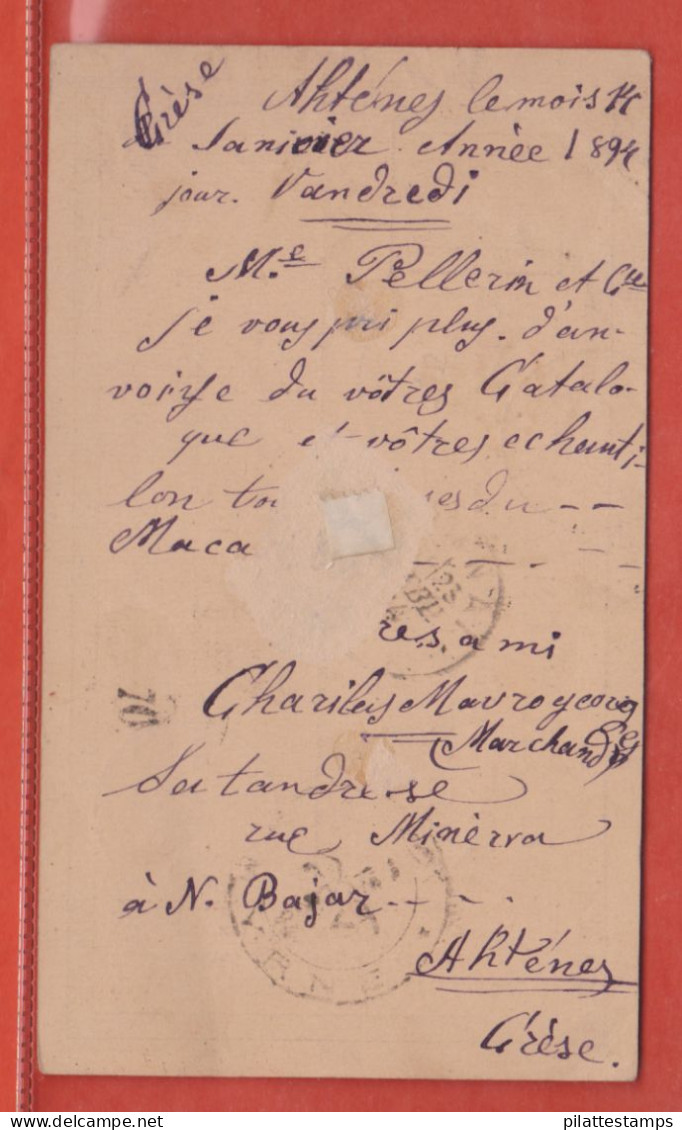 Grèse
Ahténes le mois
Janivier. Année 1894
jour. Vandredi
M.e Pellerin et Cie
je vous pri plus. d'an-
voiye du vôtres Catalo-
que et vôtres echanti-
lon esdu - -
Maca - - - - -
res ami
Charilas Mavrogeorges
Marchand
Sa tandrese
rue Minèrva
à N. Bajar - - -
Ahténes
Grèse.
70
pilattestamps.com